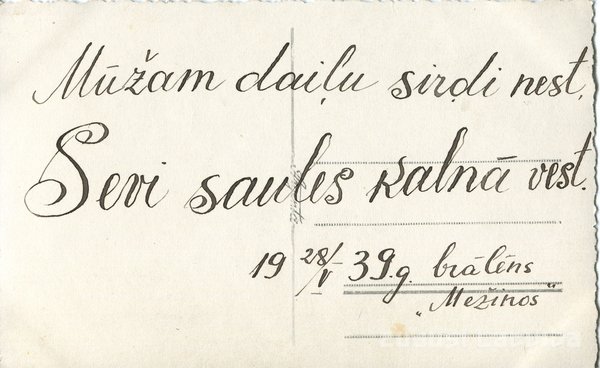 Mūžam daiļu sirdi nest,
Sevi saules kalnā vest.
19 28/V 39.g. brālēns
„Mežinos"